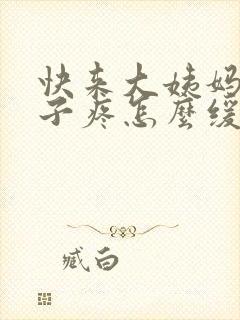 快来大姨妈
子疼怎麼缓
臧白